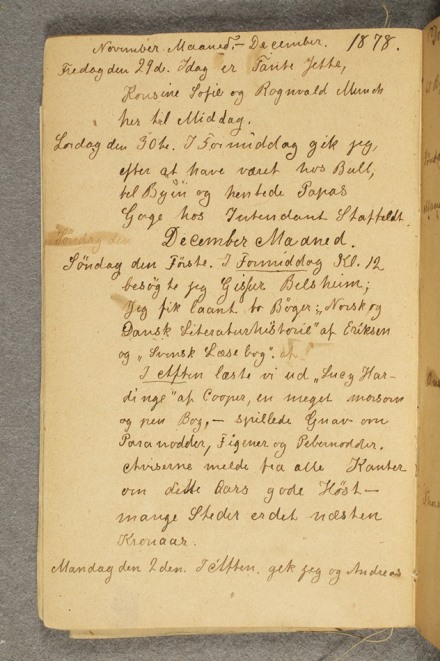 November Maaned. – December. 1878.
Fredag den 29de. Idag er Tante Jette,
Kousine Sofie og Rognvald Munch
her til Middag.
Lørdag den 30te. I Formiddag gik jeg,
efter at have været hos Bull,
til Byen og hentede Papas
Gage hos Intendant Staffeldt.
Søndag den
December Maaned.
Søndag den Förste. I Formiddag Kl. 12
besögte jeg Gisjur Belsheim;
Jeg fik laant to Böger: „Norsk og
Dansk Literaturhistorie" af Eriksen
og „Svensk Læsebog". af
I Aften læste vi ud „Lucy Har-
dinge" af Cooper, en meget morsom
og pen Bog, – spillede Gnav om
Paranödder, Figener og Pebernödder.
Aviserne melde fra alle Kanter
om dette Aars gode Höst –
mange Steder er det næsten
Kronaar.
Mandag den 2den. I Aften. gik jeg og Andreas